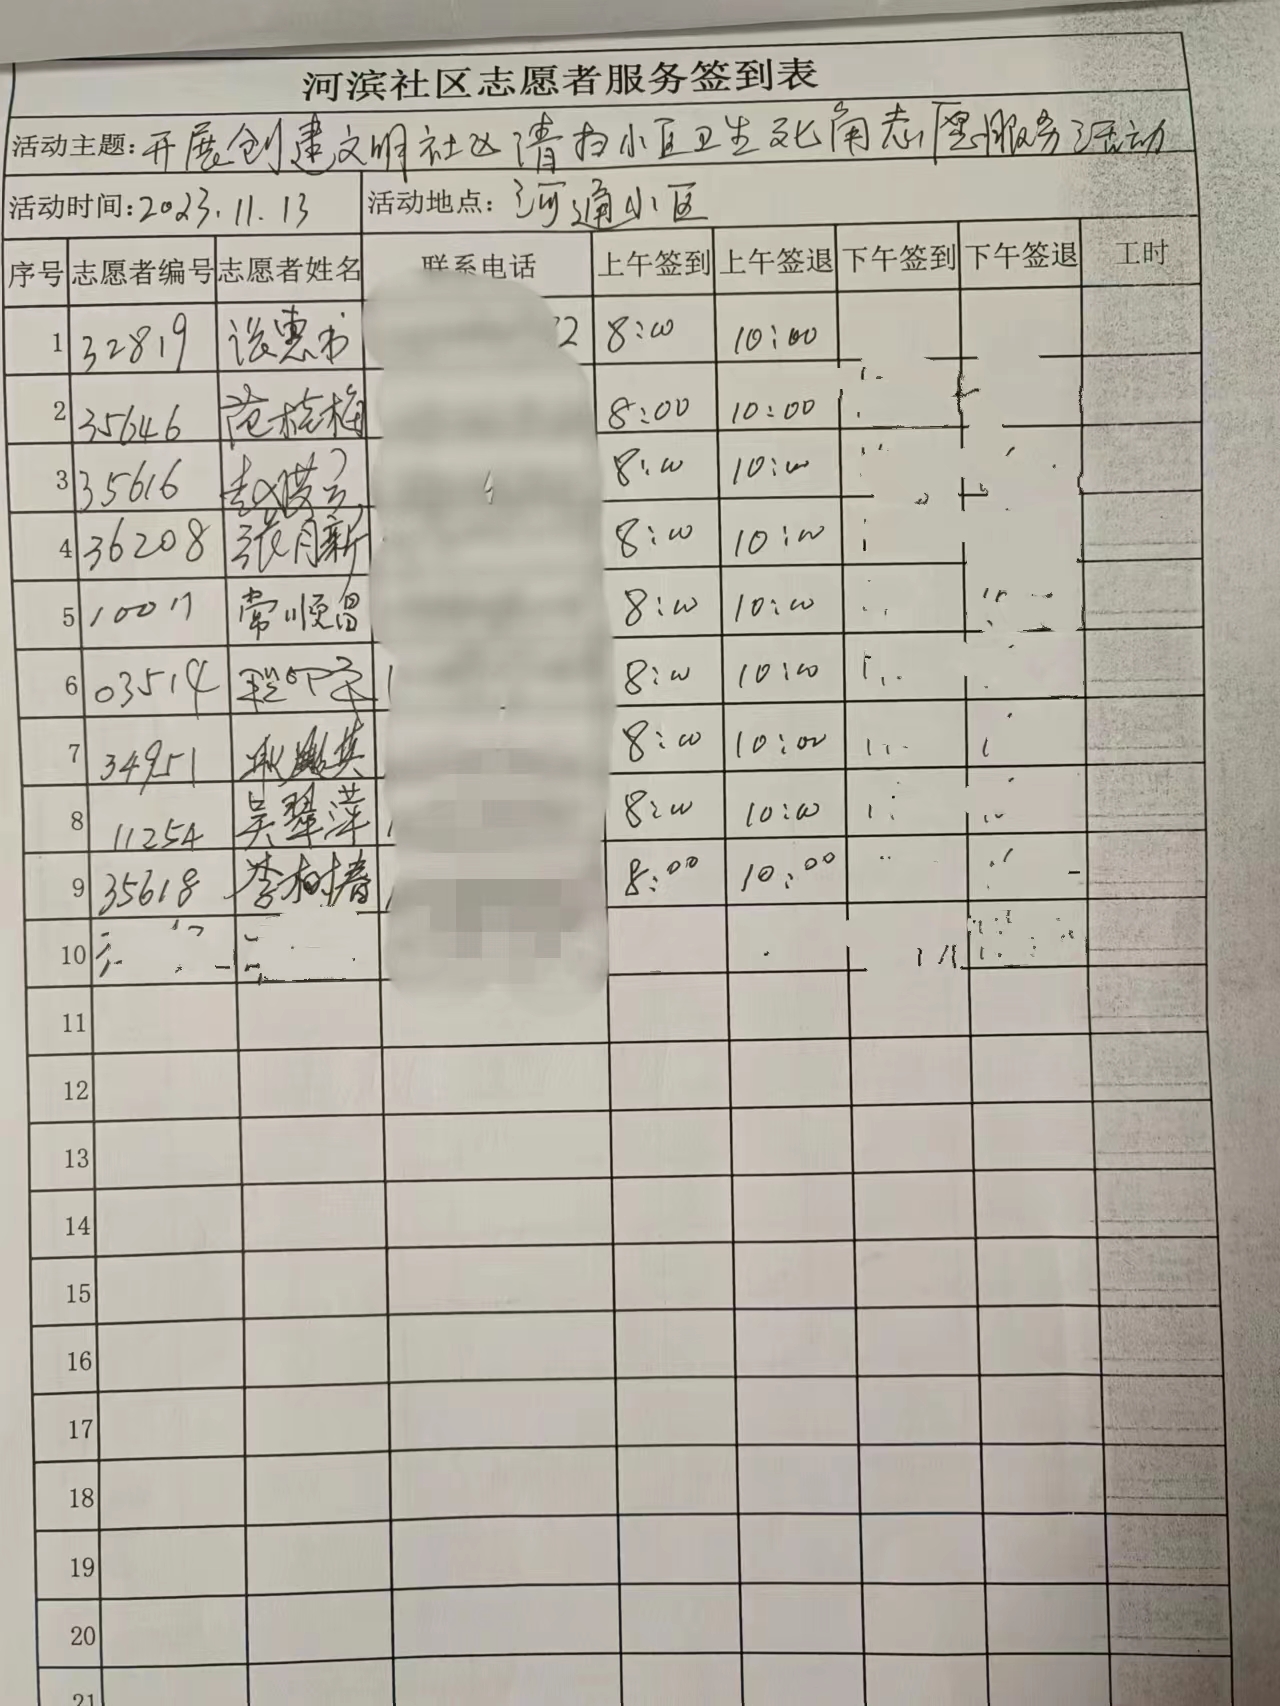 河滨社区志愿者服务签到表
活动主题：开展创建文明社区清扫小区卫生死角志愿服务活动
活动时间：2023.11.13 活动地点：河通小区
序号 志愿者编号 志愿者姓名 联系电话 上午签到 上午签退 下午签到 下午签退 工时
1 32819 2 8:00 10:00
2 35646 范桂梅 8:00 10:00
3 35616 8:00 10:00
4 36208 张月新 8:00 10:00
5 常顺昌 8:00 10:00
6 03514 8:00 10:00
7 34951 8:00 10:00
8 11254 吴翠萍 8:00 10:00
9 35618 李树春 8:00 10:00
10
11
12
13
14
15
16
17
18
19
20
21